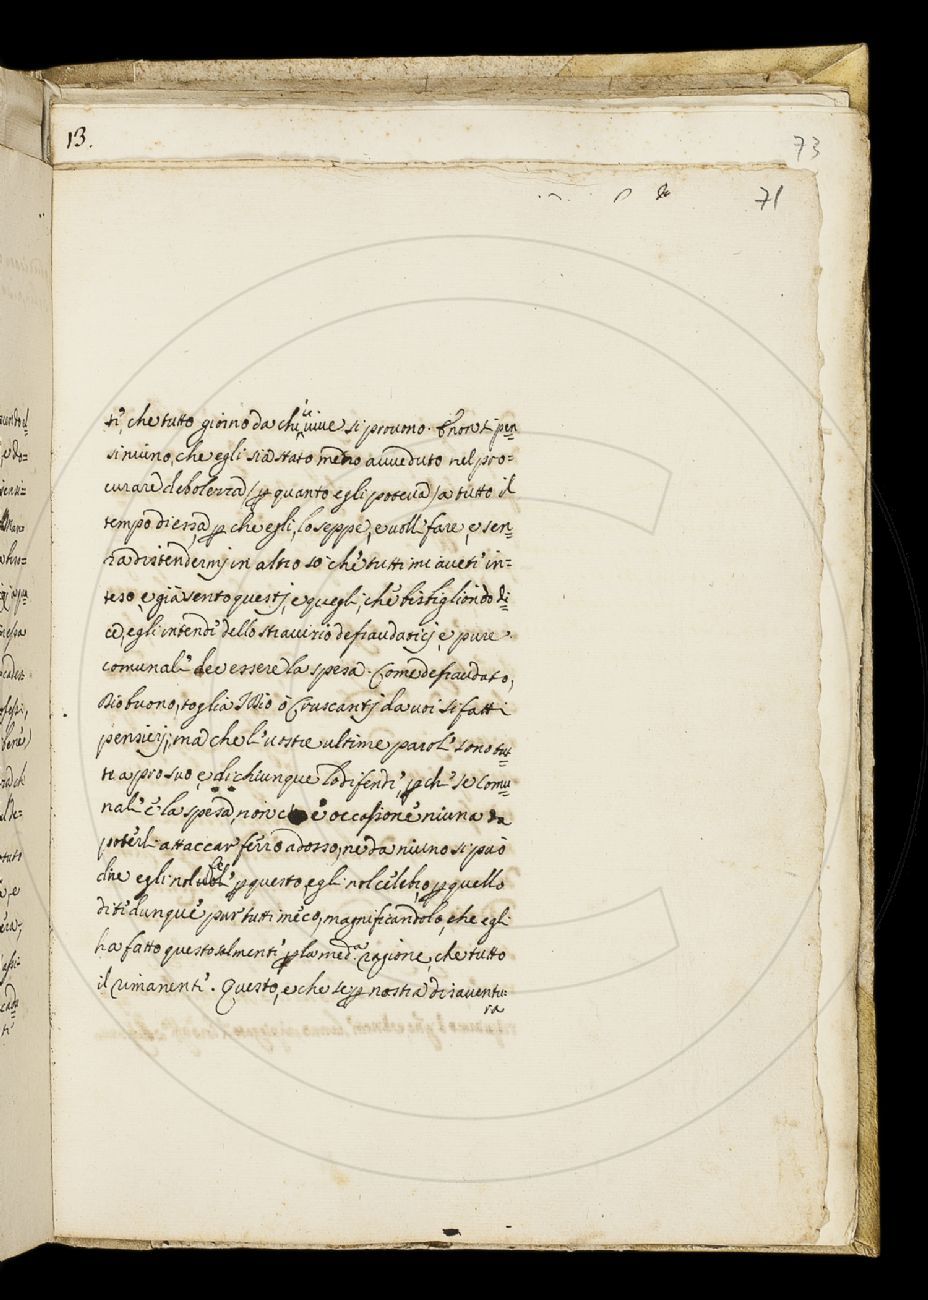 13.
73
71
ti, che tutto giorno da chi vive si provono. E non si pen=
si niuno, che egli sia stato meno avveduto nel pro=
curare debolezza (ꝑ quanto egli poteva) a tutto il
tempo di essa, ꝑ che egli, lo seppe, e volle fare, e sen=
za distendermj in altro so che tutti mi avete in=
teso, e già sento questj, e quegli, che bisbigliondo di=
ce, egli intende dello stravizio defraudatocj, e pure
comunale dee essere la spesa. Come defraudato,
Dio buono, toglia Iddio ò Cruscantj da voi sì fatti
pensierj; ma che le vostre ultime parole sono tut=
te a pro suo, e di chiunque lo difende, ꝑche se comu=
nale è la spesa, non è occasione niuna da
poterle attaccar ferro adosso, ne da niuno si può
dire egli nol fe ꝑ questo, egli nol celebrò ꝑ quello
dite dunque pur tutti meco, magnificandolo, che egli
ha fatto questo talmente ꝑ la med.ª ragione, che tutto
il rimanente. Questo, e che se ꝑ nostra disaventu=
ra